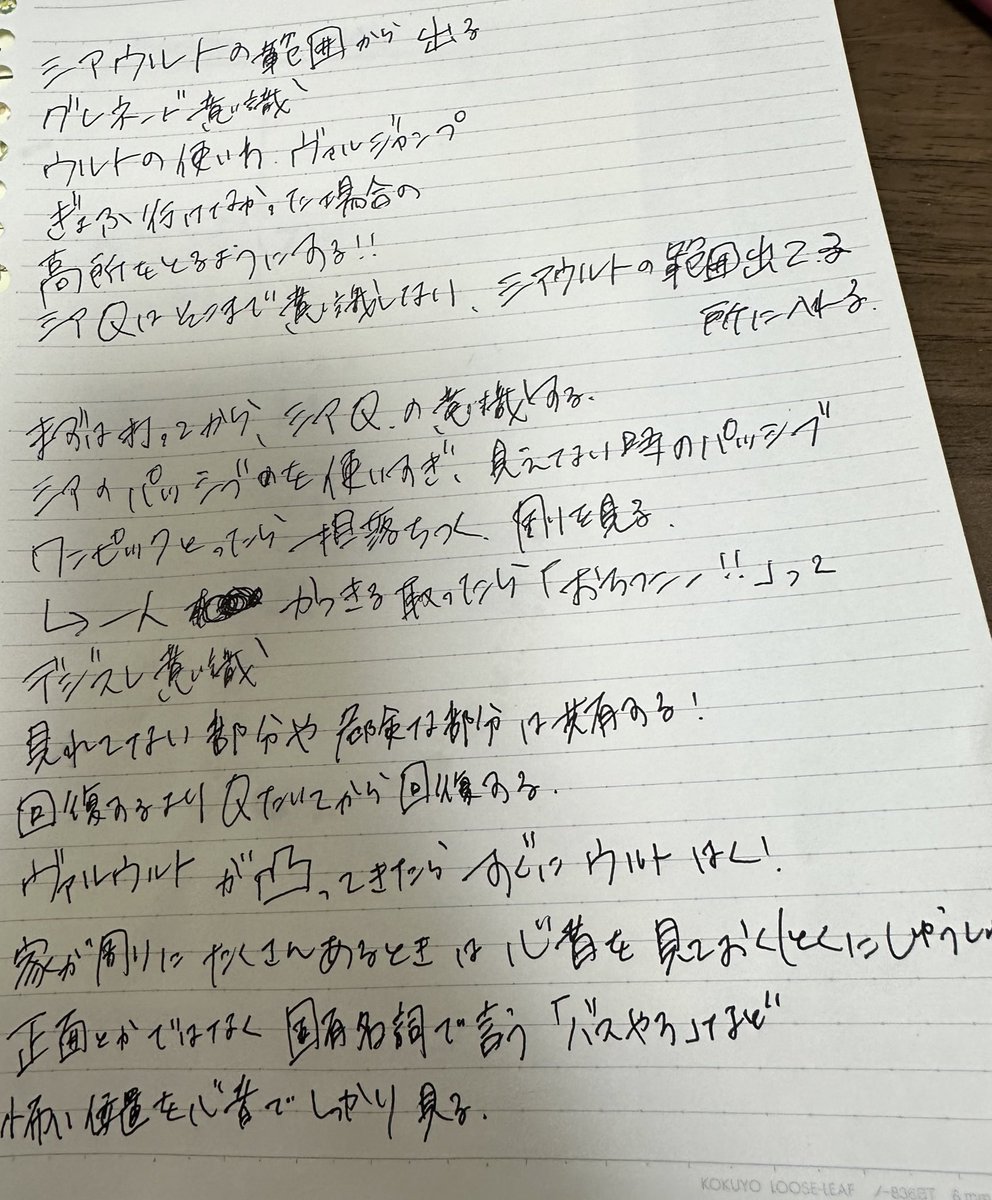 シアウルトの範囲から出る
グレネード意識
ウルトの使いわ ヴァルジャンプ
ぎょふ行けてなかった場合の
高所をとるようにする!!
シアQはそこまで意識しない、シアウルトの範囲出てる
所に入れる.
まずは打ってから、シアQ.の意識する.
シアのパッシブを使いすぎ、見えてない時のパッシブ
ワンピックとったら一旦落ちつく. 周りを見る.
↳一人 からきる取ったら「おちつこー!!」って
デジスレ意識
見れてない部分や危険な部分は共有する!
回復するよりQたいてから回復する.
ヴァルウルトが凸ってきたらすぐにウルトはく!
家が周りにたくさんあるときは心音を見ておく(とくにしゅうし
正面とかではなく固有名詞で言う「バスやろ」など
怖い位置を心音でしっかり見る.
KOKUYO LOOSE-LEAF